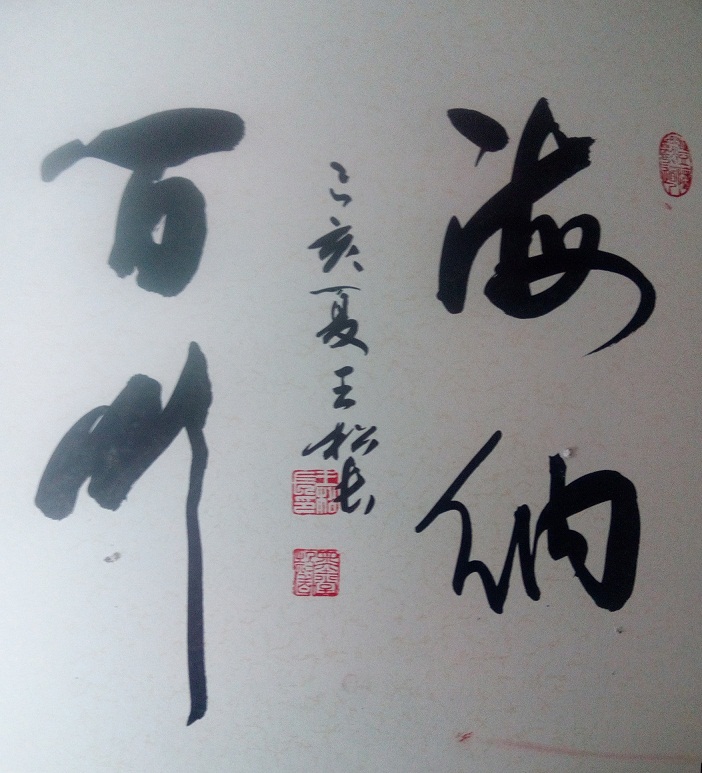 海纳
百川
己亥夏王松长